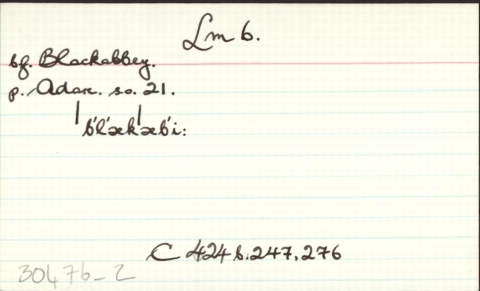 Lm 6.
bf. Blackabbey.
p. Adare. so. 21.
b'l'æk'æb'i:
C 424 b. 247, 276
30476-2